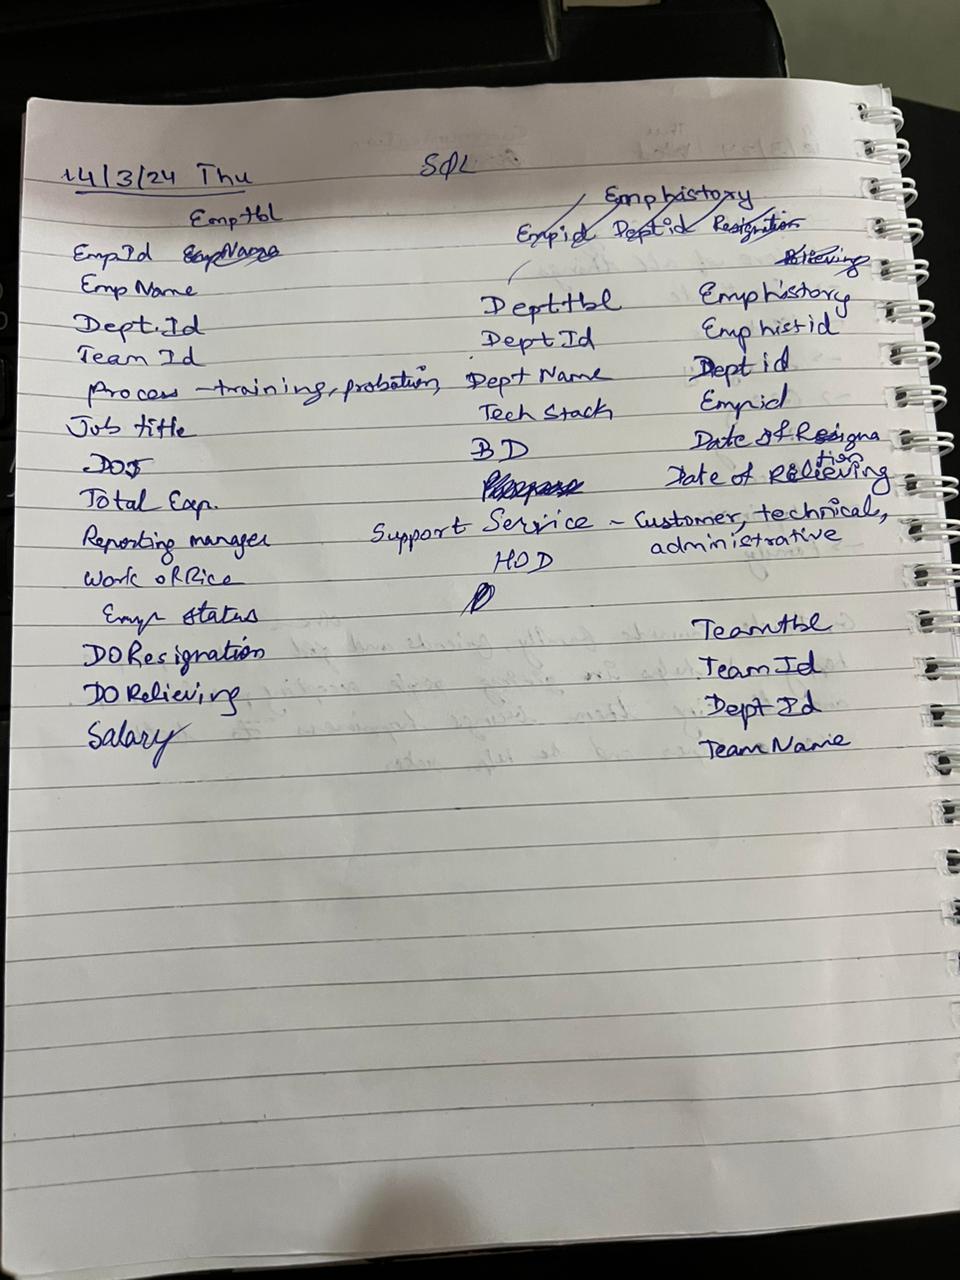 14/3/24 Thu
SQL
Emptbl
EmpId EmpName
Emp Name
Dept.Id
Team Id
Process - training, probation,
Job title
DOJ
Total Exp.
Reporting manager
Work office
Emp status
DO Resignation
DO Relieving
Salary
Emphistory
Empid Deptid Resignation
Relieving
Depttbl
Dept Id
Dept Name
Tech Stack
BD
Support Service - Customer, technical,
administrative
HOD
Emphistory
Emphistid
Dept id
Empid
Date of Resigna
tion
Date of Relieving
Teamtbl
Team Id
Dept Id
Team Name